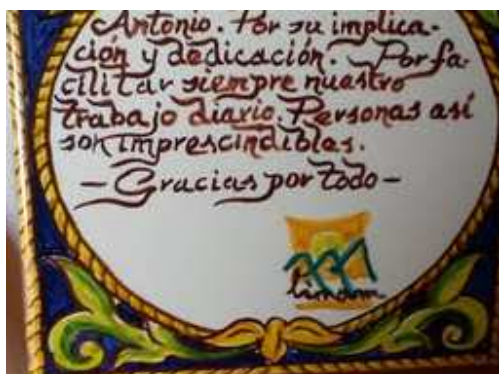 Antonio. Por su implica-
ción y dedicación. Por fa-
cilitar siempre nuestro
trabajo diario. Personas así
son imprescindibles.
- Gracias por todo -